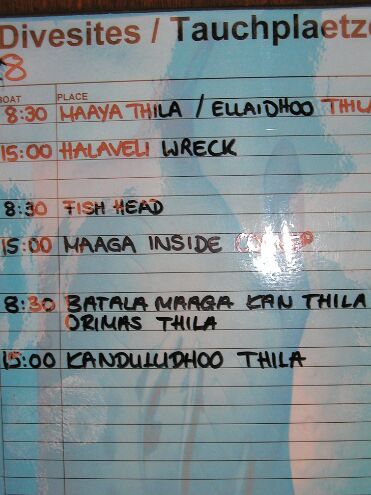 Divesites / Tauchplaetze
8
BOAT PLACE
8:30 MAAYA THILA / ELLAIDHOO THILA
15:00 HALAVELI WRECK
8:30 FISH HEAD
15:00 MAAGA INSIDE
8:30 BATALA MAAGA KAN THILA
ORIMAS THILA
15:00 KANDULUDHOO THILA